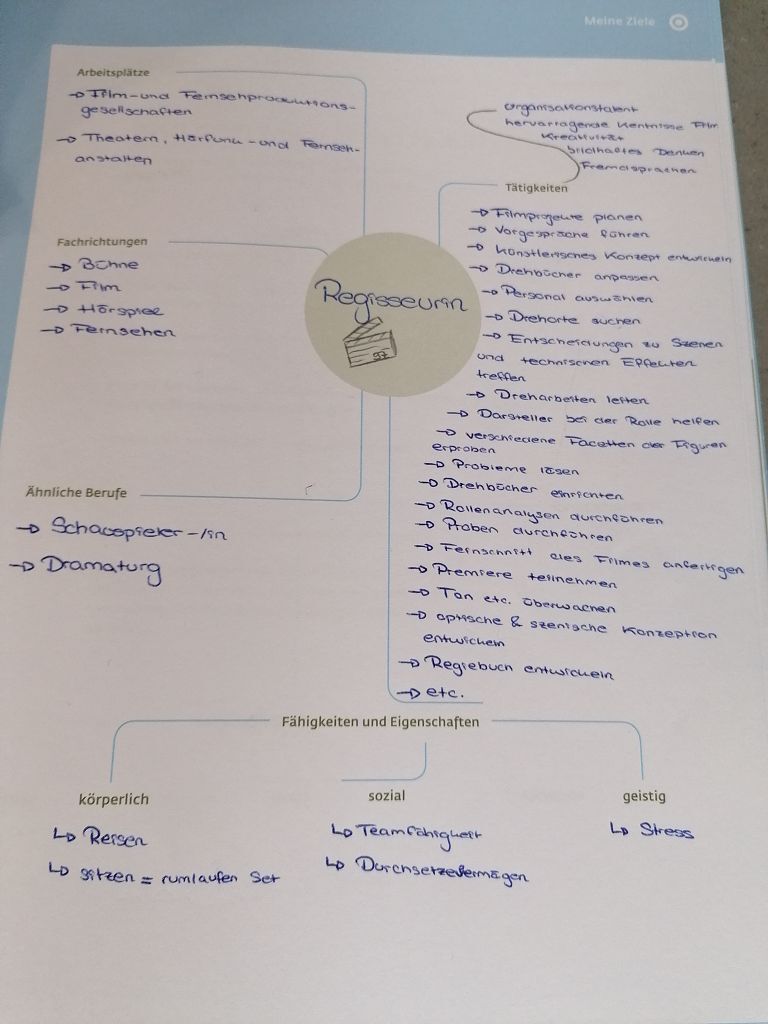 Meine Ziele
Arbeitsplätze
→ Film- und Fernsehproduktions-
gesellschaften
→ Theatern, Hörfunk- und Fernseh-
anstalten
Fachrichtungen
→ Bühne
→ Film
→ Hörspiel
→ Fernsehen
Ähnliche Berufe
→ Schauspieler -/in
→ Dramaturg
Regisseurin
Organisationstalent
hervorragende Kentnisse Film
Kreativität
bildhaftes Denken
Fremdsprachen
Tätigkeiten
→ Filmprojekte planen
→ Vorgespräche führen
→ Künstlerisches Konzept entwickeln
→ Drehbücher anpassen
→ Personal auswählen
→ Drehorte suchen
→ Entscheidungen zu Szenen
und technischen Effekten
treffen
→ Dreharbeiten leiten
→ Darsteller bei der Rolle helfen
→ verschiedene Facetten der Figuren
erproben
→ Probleme lösen
→ Drehbücher einrichten
→ Rollenanalysen durchführen
→ Proben durchführen
→ Feinschnitt des Filmes anfertigen
→ Premiere teilnehmen
→ Ton etc. überwachen
→ optische & szenische Konzeption
entwickeln
→ Regiebuch entwickeln
→ etc.
Fähigkeiten und Eigenschaften
körperlich
↳ Reisen
↳ sitzen = rumlaufen Set
sozial
↳ Teamfähigkeit
↳ Durchsetzevermögen
geistig
↳ Stress